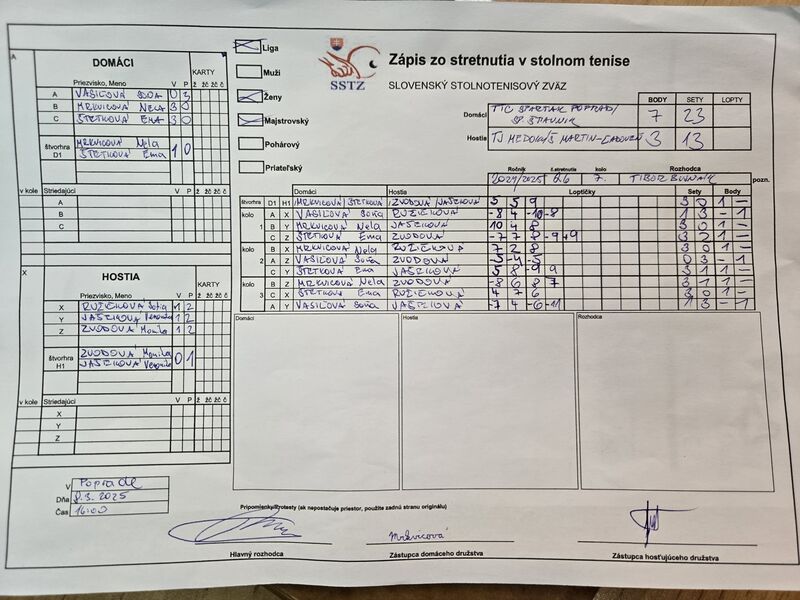 Zápis zo stretnutia v stolnom tenise
SLOVENSKÝ STOLNOTENISOVÝ ZVÄZ
SSTZ
Liga
Muži
Ženy
Majstrovský
Pohárový
Priateľský
BODY SETY LOPTY
Domáci TTC SPARTAK POPRAD/ 7 23
Hostia TJ MEDOKÝŠ MARTIN- 3 13
Ročník č.stretnutia kolo Rozhodca
2024/2025 7. TIBOR pozn.
A
DOMÁCI
Priezvisko, Meno V P KARTY
ž žč žč č
A VASIĽOVÁ SOŇA 0 3
B MRKVICOVÁ NELA 3 0
C ŠTETKOVÁ EMA 3 0
štvorhra D1 MRKVICOVÁ Nela 1 0
ŠTETKOVÁ Ema
v kole Striedajúci V P ž žč žč č
A
B
C
X
HOSTIA
Priezvisko, Meno V P KARTY
ž žč žč č
X RUŽIČKOVÁ Sofia 1 2
Y JAŠEKOVÁ Veronika 1 2
Z ZVODOVÁ Monika 1 2
štvorhra H1 ZVODOVÁ Monika 0 1
JAŠEKOVÁ Veronika
v kole Striedajúci V P ž žč žč č
X
Y
Z
Domáci Hostia Loptičky Sety Body
štvorhra D1 H1 MRKVICOVÁ/ŠTETKOVÁ ZVODOVÁ/JAŠEKOVÁ 5 5 9 3 0 1 –
kolo A X VASIĽOVÁ Soňa RUŽIČKOVÁ -8 4 -10 -8 1 3 – 1
1 B Y MRKVICOVÁ Nela JAŠEKOVÁ 10 4 8 3 0 1 –
C Z ŠTETKOVÁ Ema ZVODOVÁ -7 7 -9 +9 3 2 1 –
kolo B X MRKVICOVÁ Nela RUŽIČKOVÁ 7 2 8 3 0 1 –
2 A Z VASIĽOVÁ Soňa ZVODOVÁ -5 -4 -5 0 3 – 1
C Y ŠTETKOVÁ Ema JAŠEKOVÁ 5 8 -9 9 3 1 1 –
kolo B Z MRKVICOVÁ Nela ZVODOVÁ -8 6 8 7 3 1 1 –
3 C X ŠTETKOVÁ Ema RUŽIČKOVÁ 4 7 6 3 0 1 –
A Y VASIĽOVÁ Soňa JAŠEKOVÁ -7 4 -6 -11 1 3 – 1
Domáci Hostia Rozhodca
V Poprade
Dňa 8.3.2025
Čas 16:00
Pripomienky/Protesty (ak nepostačuje priestor, použite zadnú stranu originálu)
Mrkvicová
Hlavný rozhodca Zástupca domáceho družstva Zástupca hosťujúceho družstva